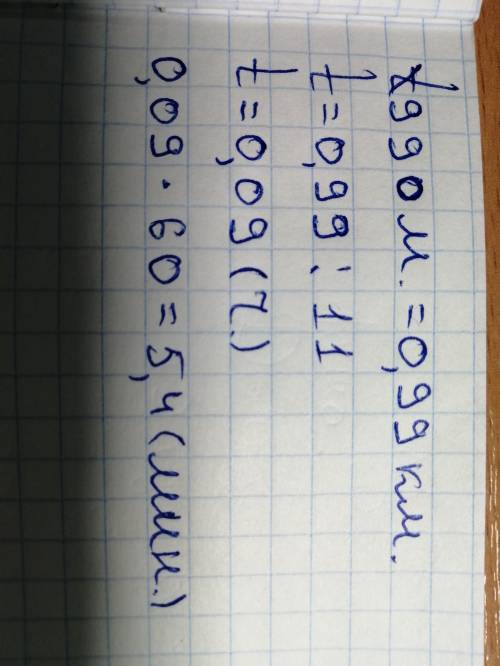 990 м. = 0,99 км.
t = 0,99 : 11
t = 0,09 (ч.)
0,09 · 60 = 5,4 (мин.)